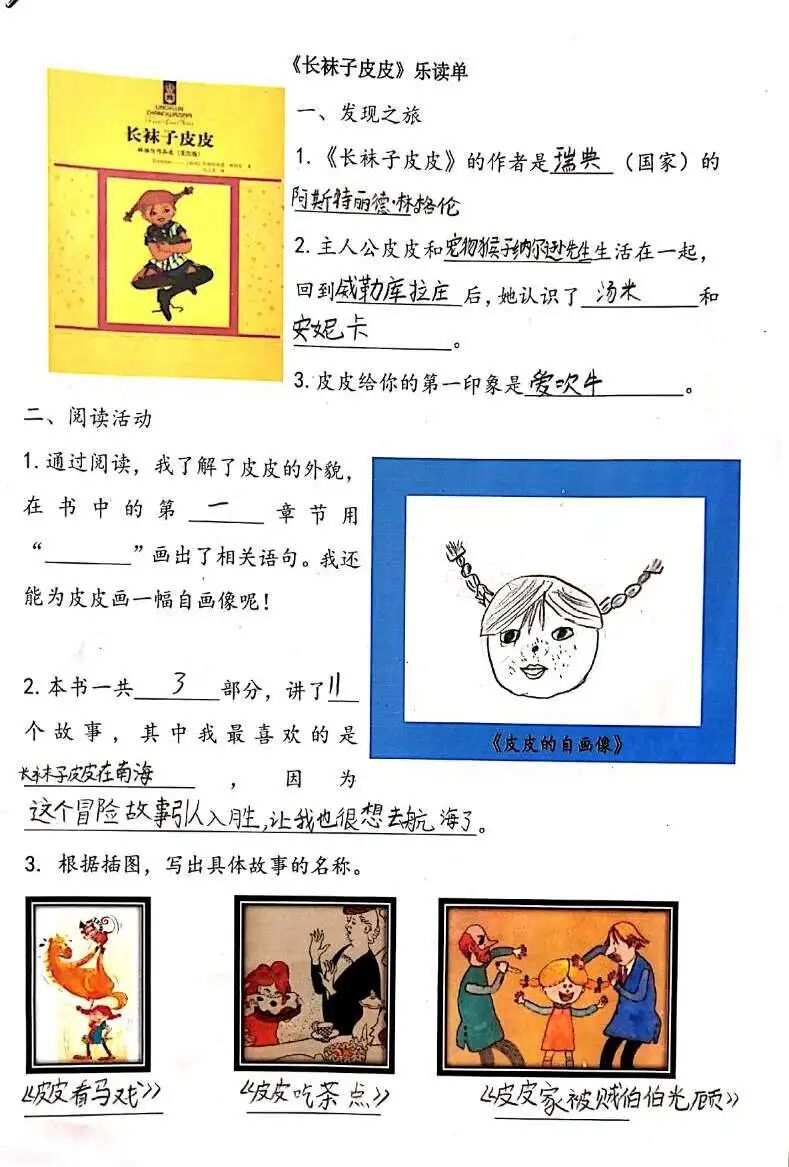 《长袜子皮皮》乐读单
长袜子皮皮
一、发现之旅
1.《长袜子皮皮》的作者是瑞典（国家）的
阿斯特丽德·林格伦
2.主人公皮皮和宠物猴子纳尔逊先生生活在一起，
回到威勒库拉庄后，她认识了汤米和
安妮卡。
3.皮皮给你的第一印象是爱吹牛。
二、阅读活动
1.通过阅读，我了解了皮皮的外貌，
在书中的第一章节用
“______”画出了相关语句。我还
能为皮皮画一幅自画像呢！
《皮皮的自画像》
2.本书一共3部分，讲了11
个故事，其中我最喜欢的是
长袜子皮皮在南海，因为
这个冒险故事引人入胜，让我也很想去航海了。
3.根据插图，写出具体故事的名称。
《皮皮看马戏》 《皮皮吃茶点》 《皮皮家被贼伯伯光顾》